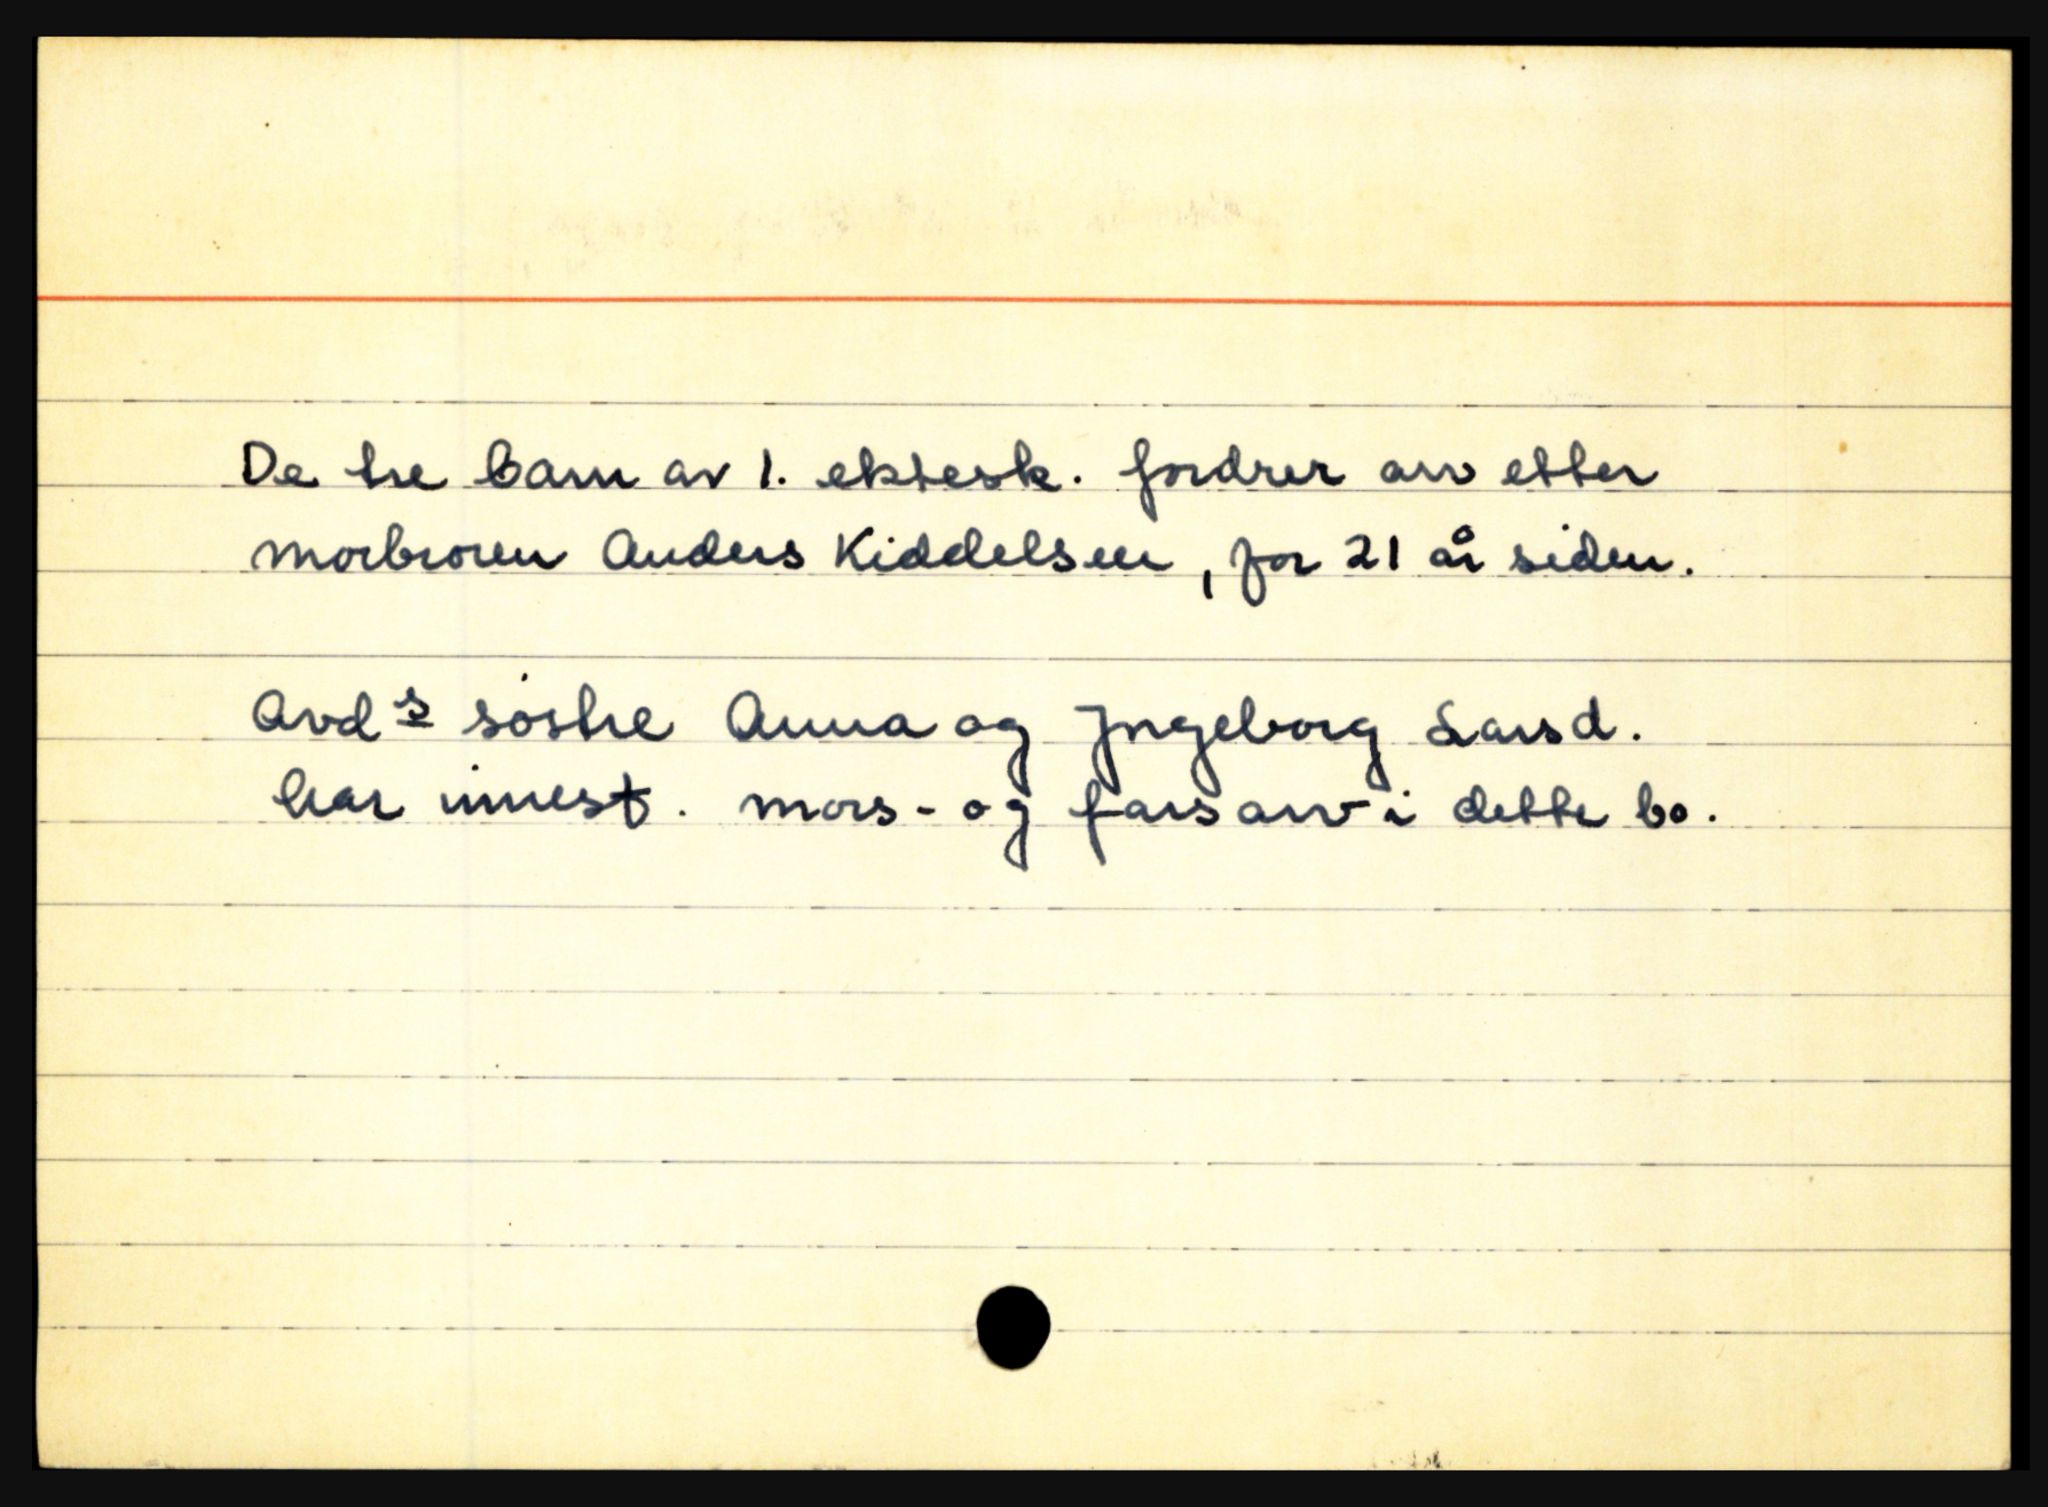 De tre barn av 1. ektesk. fordrer arv etter
morbroren Anders Kiddelsen, for 21 år siden.
Avds søstre Anna og Ingeborg Larsd.
har innest. mors- og farsarv i dette bo.